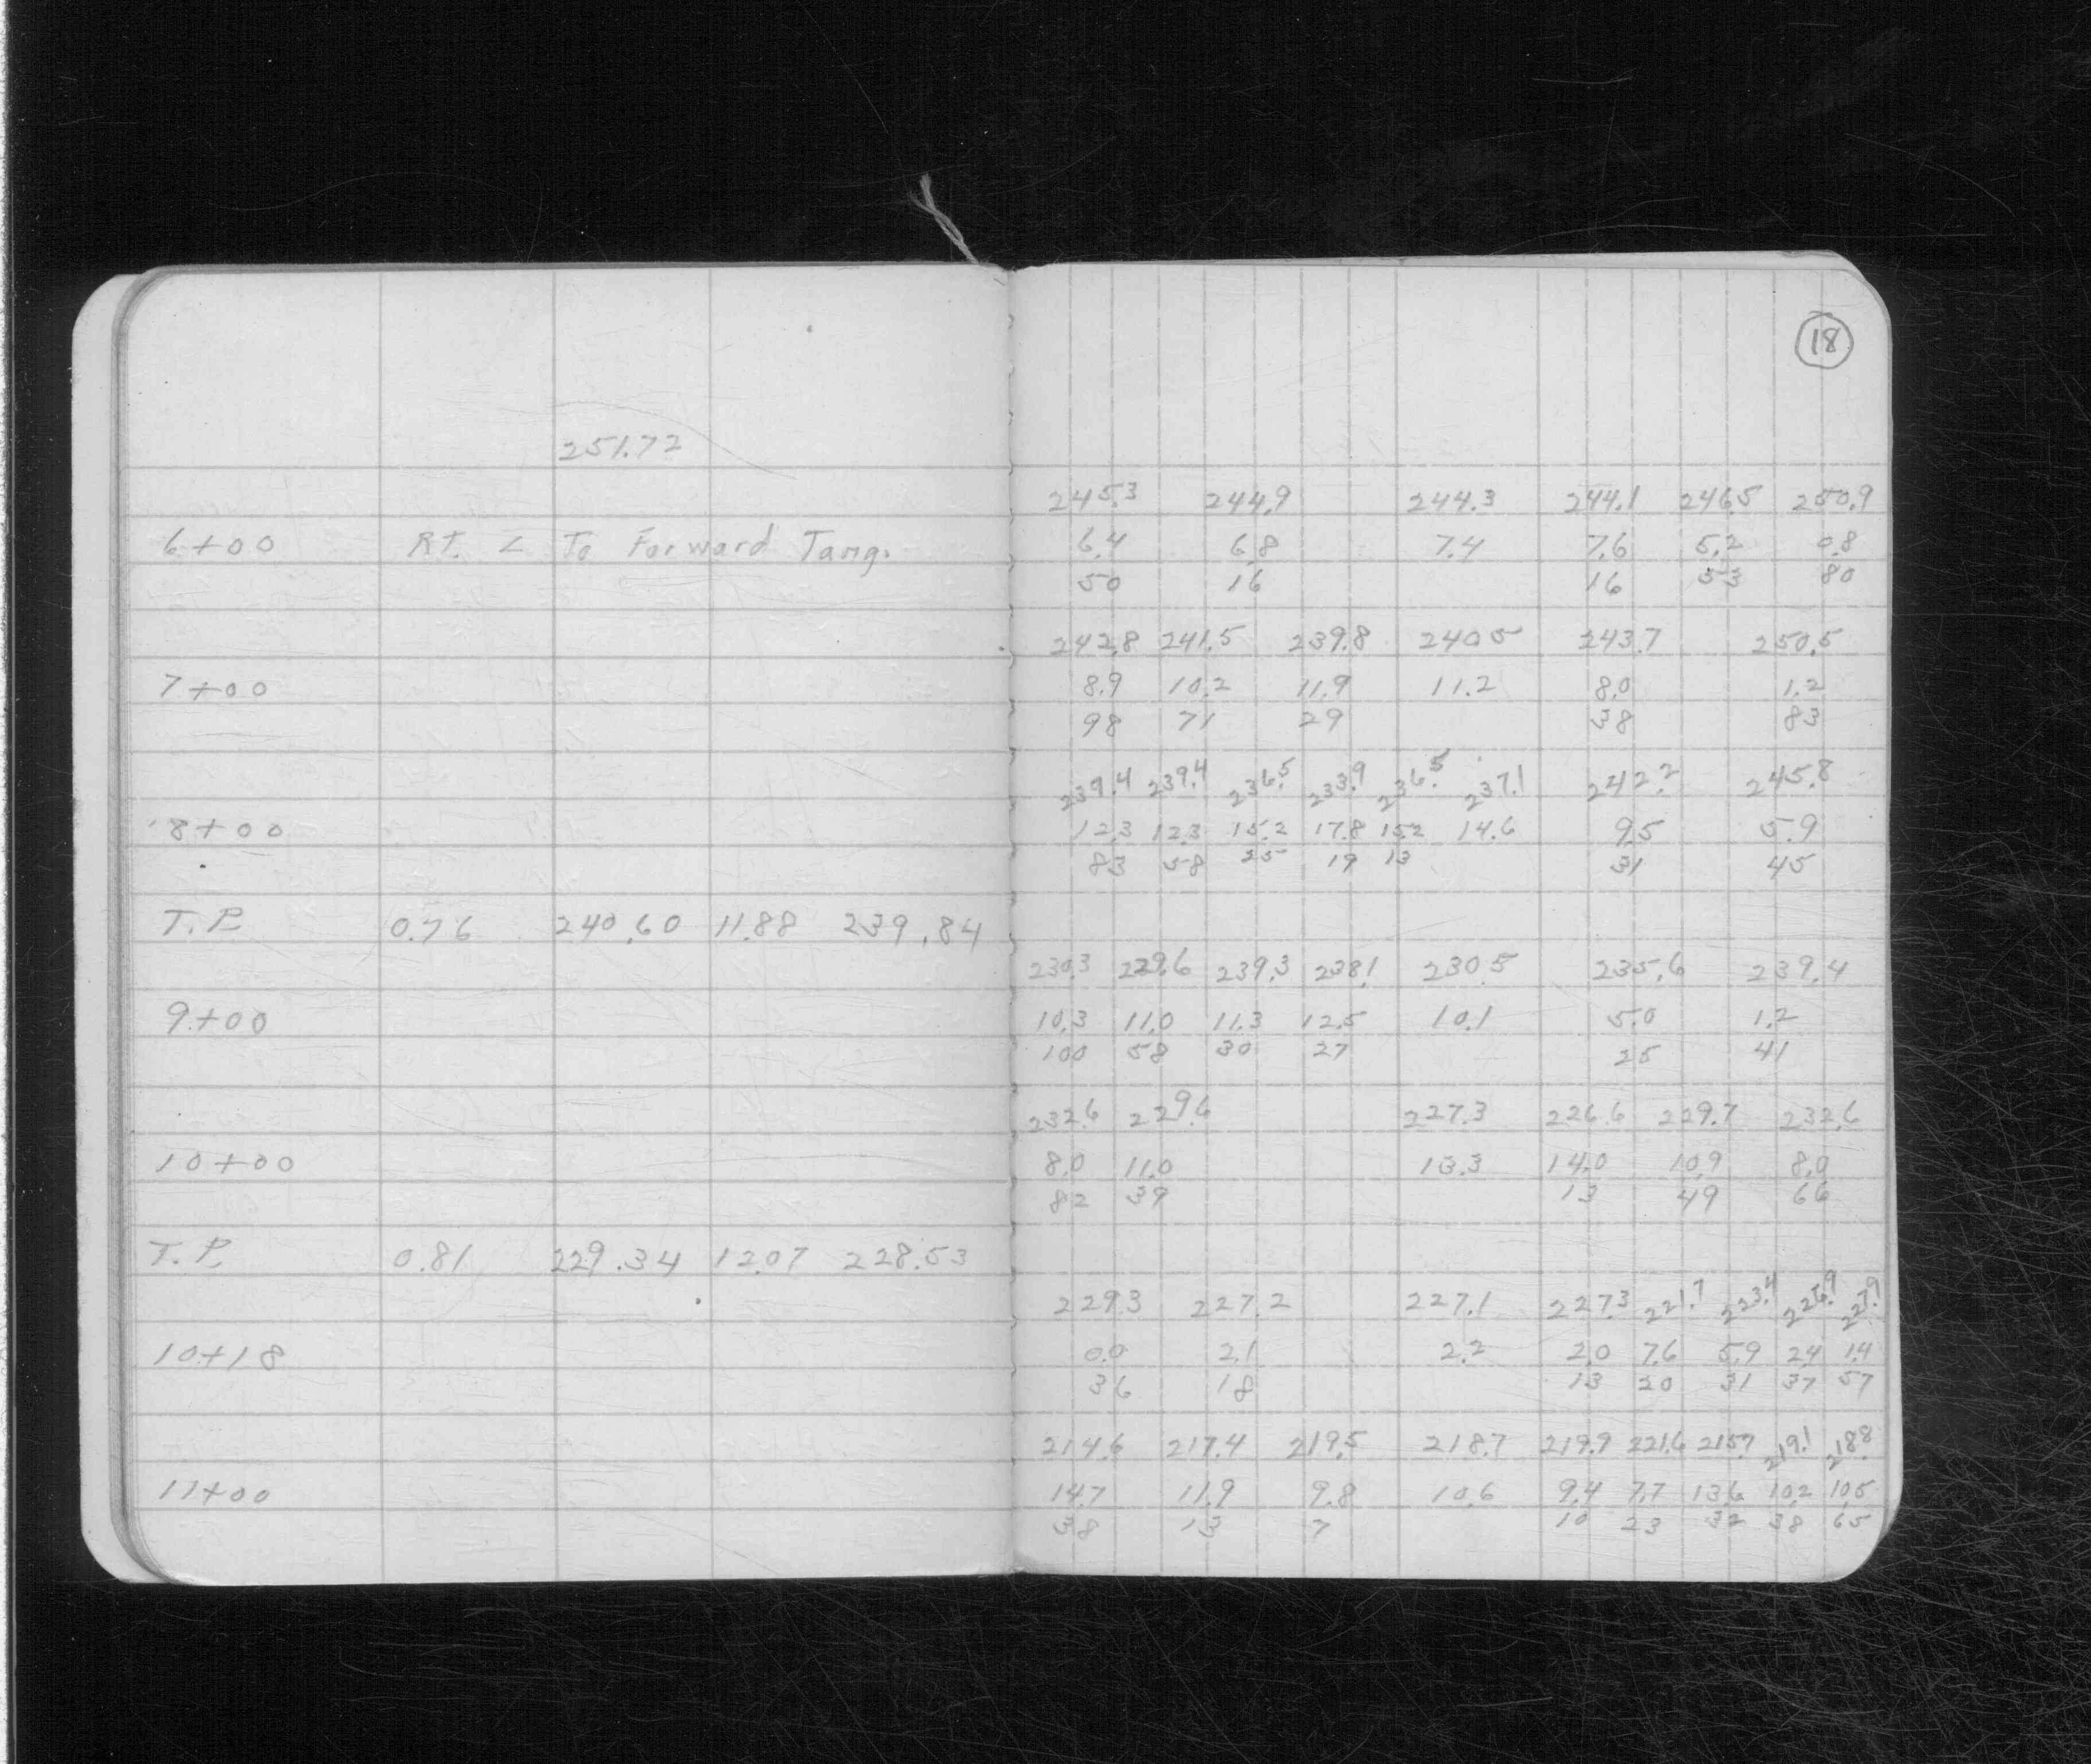 18
251.72
245.3 244.9 244.3 244.1 246.5 250.9
6+00 RT. < To Forward Tang. 6.4 6.8 7.4 7.6 5.2 0.8
50 16 16 33 80
242.8 241.5 239.8 240.5 243.7 250.5
7+00 8.9 10.2 11.9 11.2 8.0 1.2
98 71 29 38 83
239.4 239.4 236.5 233.9 236.5 237.1 242.2 245.8
8+00 12.3 12.3 15.2 17.8 15.2 14.6 9.5 5.9
83 58 25 19 13 31 45
T.P. 0.76 240.60 11.88 239.84
230.3 229.6 239.3 238.1 230.5 235.6 239.4
9+00 10.3 11.0 11.3 12.5 10.1 5.0 1.2
100 58 30 27 25 41
232.6 229.6 227.3 226.6 229.7 232.6
10+00 8.0 11.0 13.3 14.0 10.9 8.0
82 39 13 49 66
T.P. 0.81 229.34 12.07 228.53
229.3 227.2 227.1 227.3 221.7 223.4 226.9 227.9
10+18 0.0 2.1 2.2 2.0 7.6 5.9 2.4 1.4
36 18 13 20 31 37 57
214.6 217.4 219.5 218.7 219.9 221.6 215.7 219.1 218.8
11+00 14.7 11.9 9.8 10.6 9.4 7.7 13.6 10.2 10.5
38 13 7 10 23 32 38 65